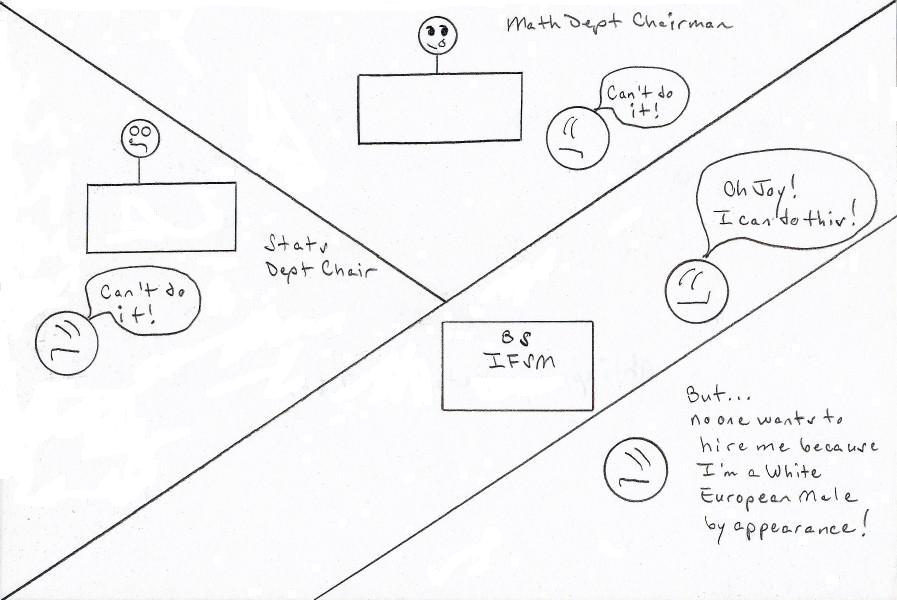 Math Dept Chairman
Can't do
it!
Stats
Dept Chair
Can't do
it!
Oh Joy!
I can do this!
BS
IFSM
But...
no one wants to
hire me because
I'm a White
European Male
by appearance!